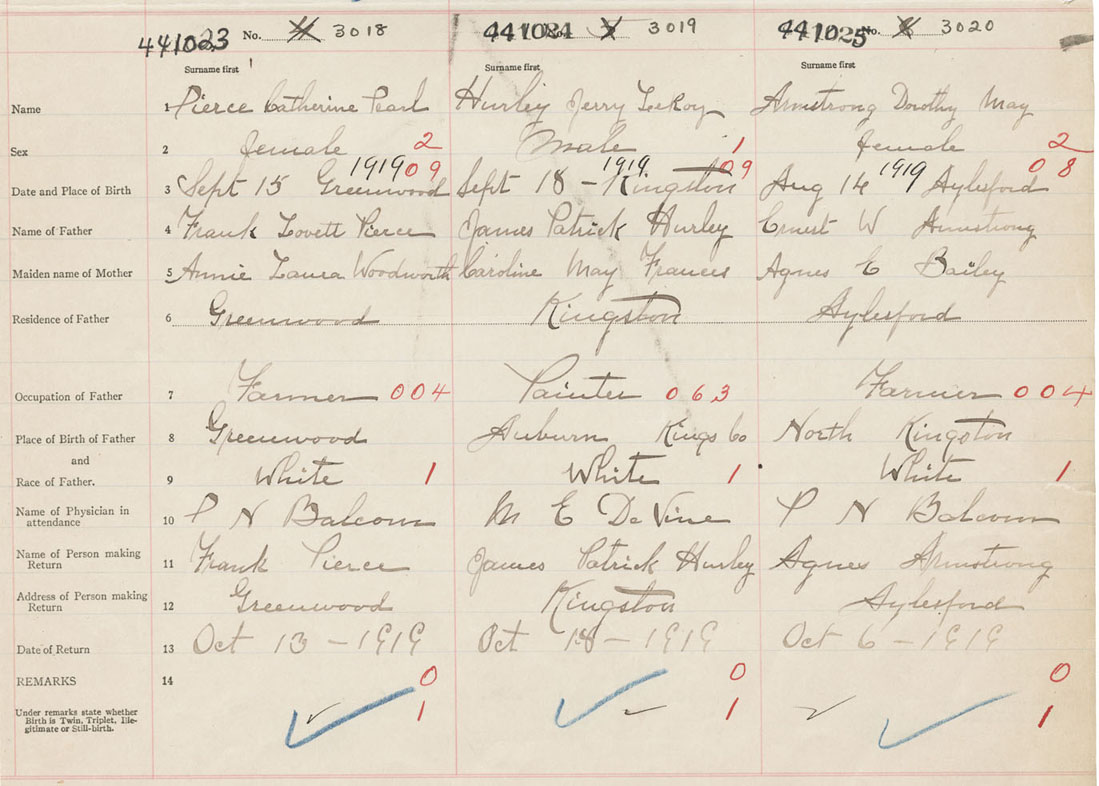 441023 No. 3018 441024 No. 3019 441025 No. 3020
Surname first Surname first Surname first
Name 1 Pierce Catherine Pearl Hurley Jerry LeRoy Armstrong Dorothy May
Sex 2 female 2 Male 1 female 2
1919 09 1919 09 1919 08
Date and Place of Birth 3 Sept 15 Greenwood Sept 18 – Kingston Aug 14 Aylesford
Name of Father 4 Frank Lovett Pierce James Patrick Hurley Ernest W Armstrong
Maiden name of Mother 5 Annie Laura Woodworth Caroline May Frances Agnes E Bailey
Residence of Father 6 Greenwood Kingston Aylesford
Occupation of Father 7 Farmer 004 Painter 063 Farmer 004
Place of Birth of Father 8 Greenwood Auburn Kings Co North Kingston
and
Race of Father. 9 White 1 White 1 White 1
Name of Physician in
attendance 10 P N Balcom M E DeVine P N Balcom
Name of Person making
Return 11 Frank Pierce James Patrick Hurley Agnes Armstrong
Address of Person making
Return 12 Greenwood Kingston Aylesford
Date of Return 13 Oct 13 – 1919 Oct 18 – 1919 Oct 6 – 1919
REMARKS 14 0 0 0
Under remarks state whether
Birth is Twin, Triplet, Ille-
gitimate or Still-birth. 1 1 1